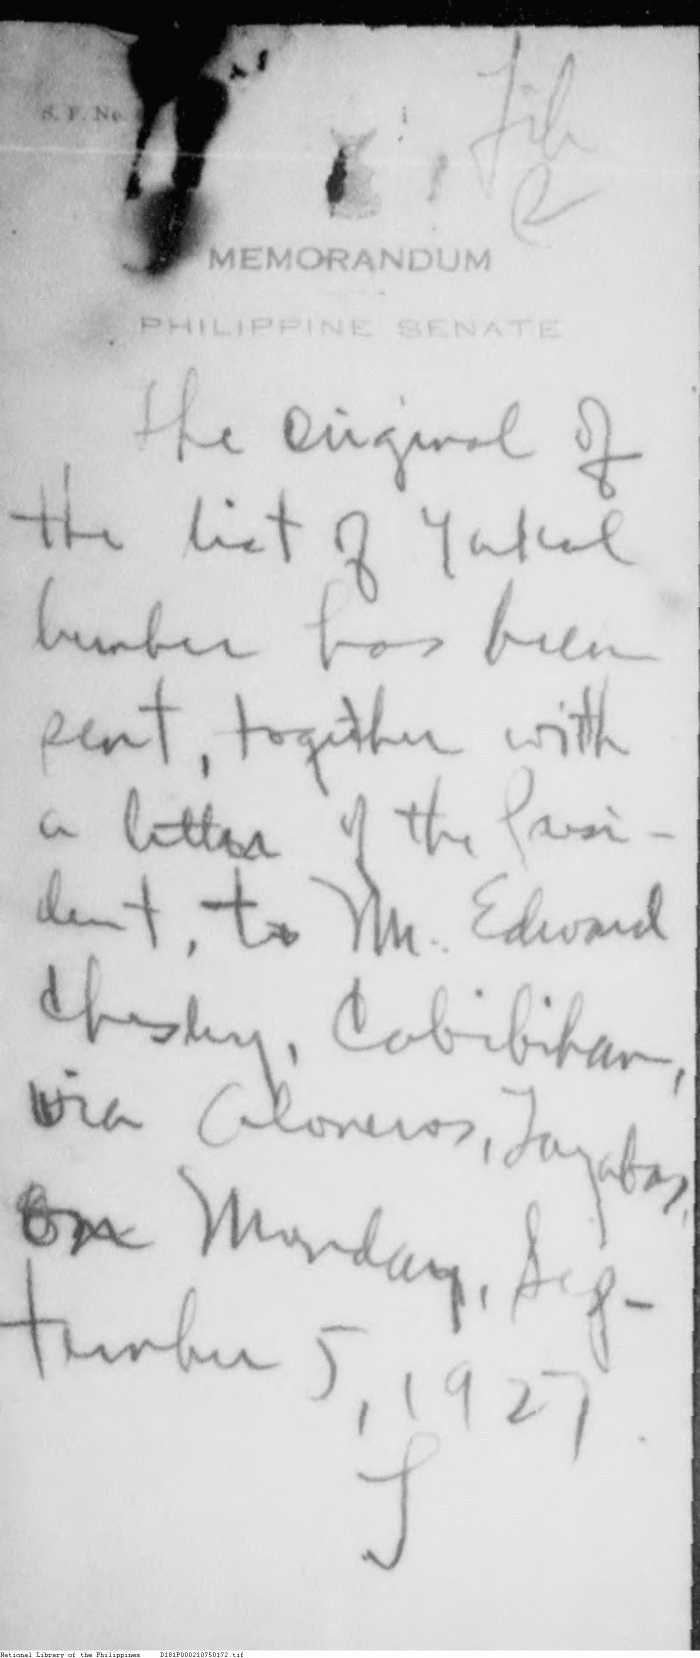 S. F. No.
File
MEMORANDUM
PHILIPPINE SENATE
The original of
the list of Yakal
lumber has been
sent, together with
a letter of the Presi-
dent, to Mr. Edward
Chesley, Cabibihan,
via Aloneros, Tayabas,
on Monday, Sep-
tember 5, 1927.
National Library of the Philippines D181P000210750172.tif